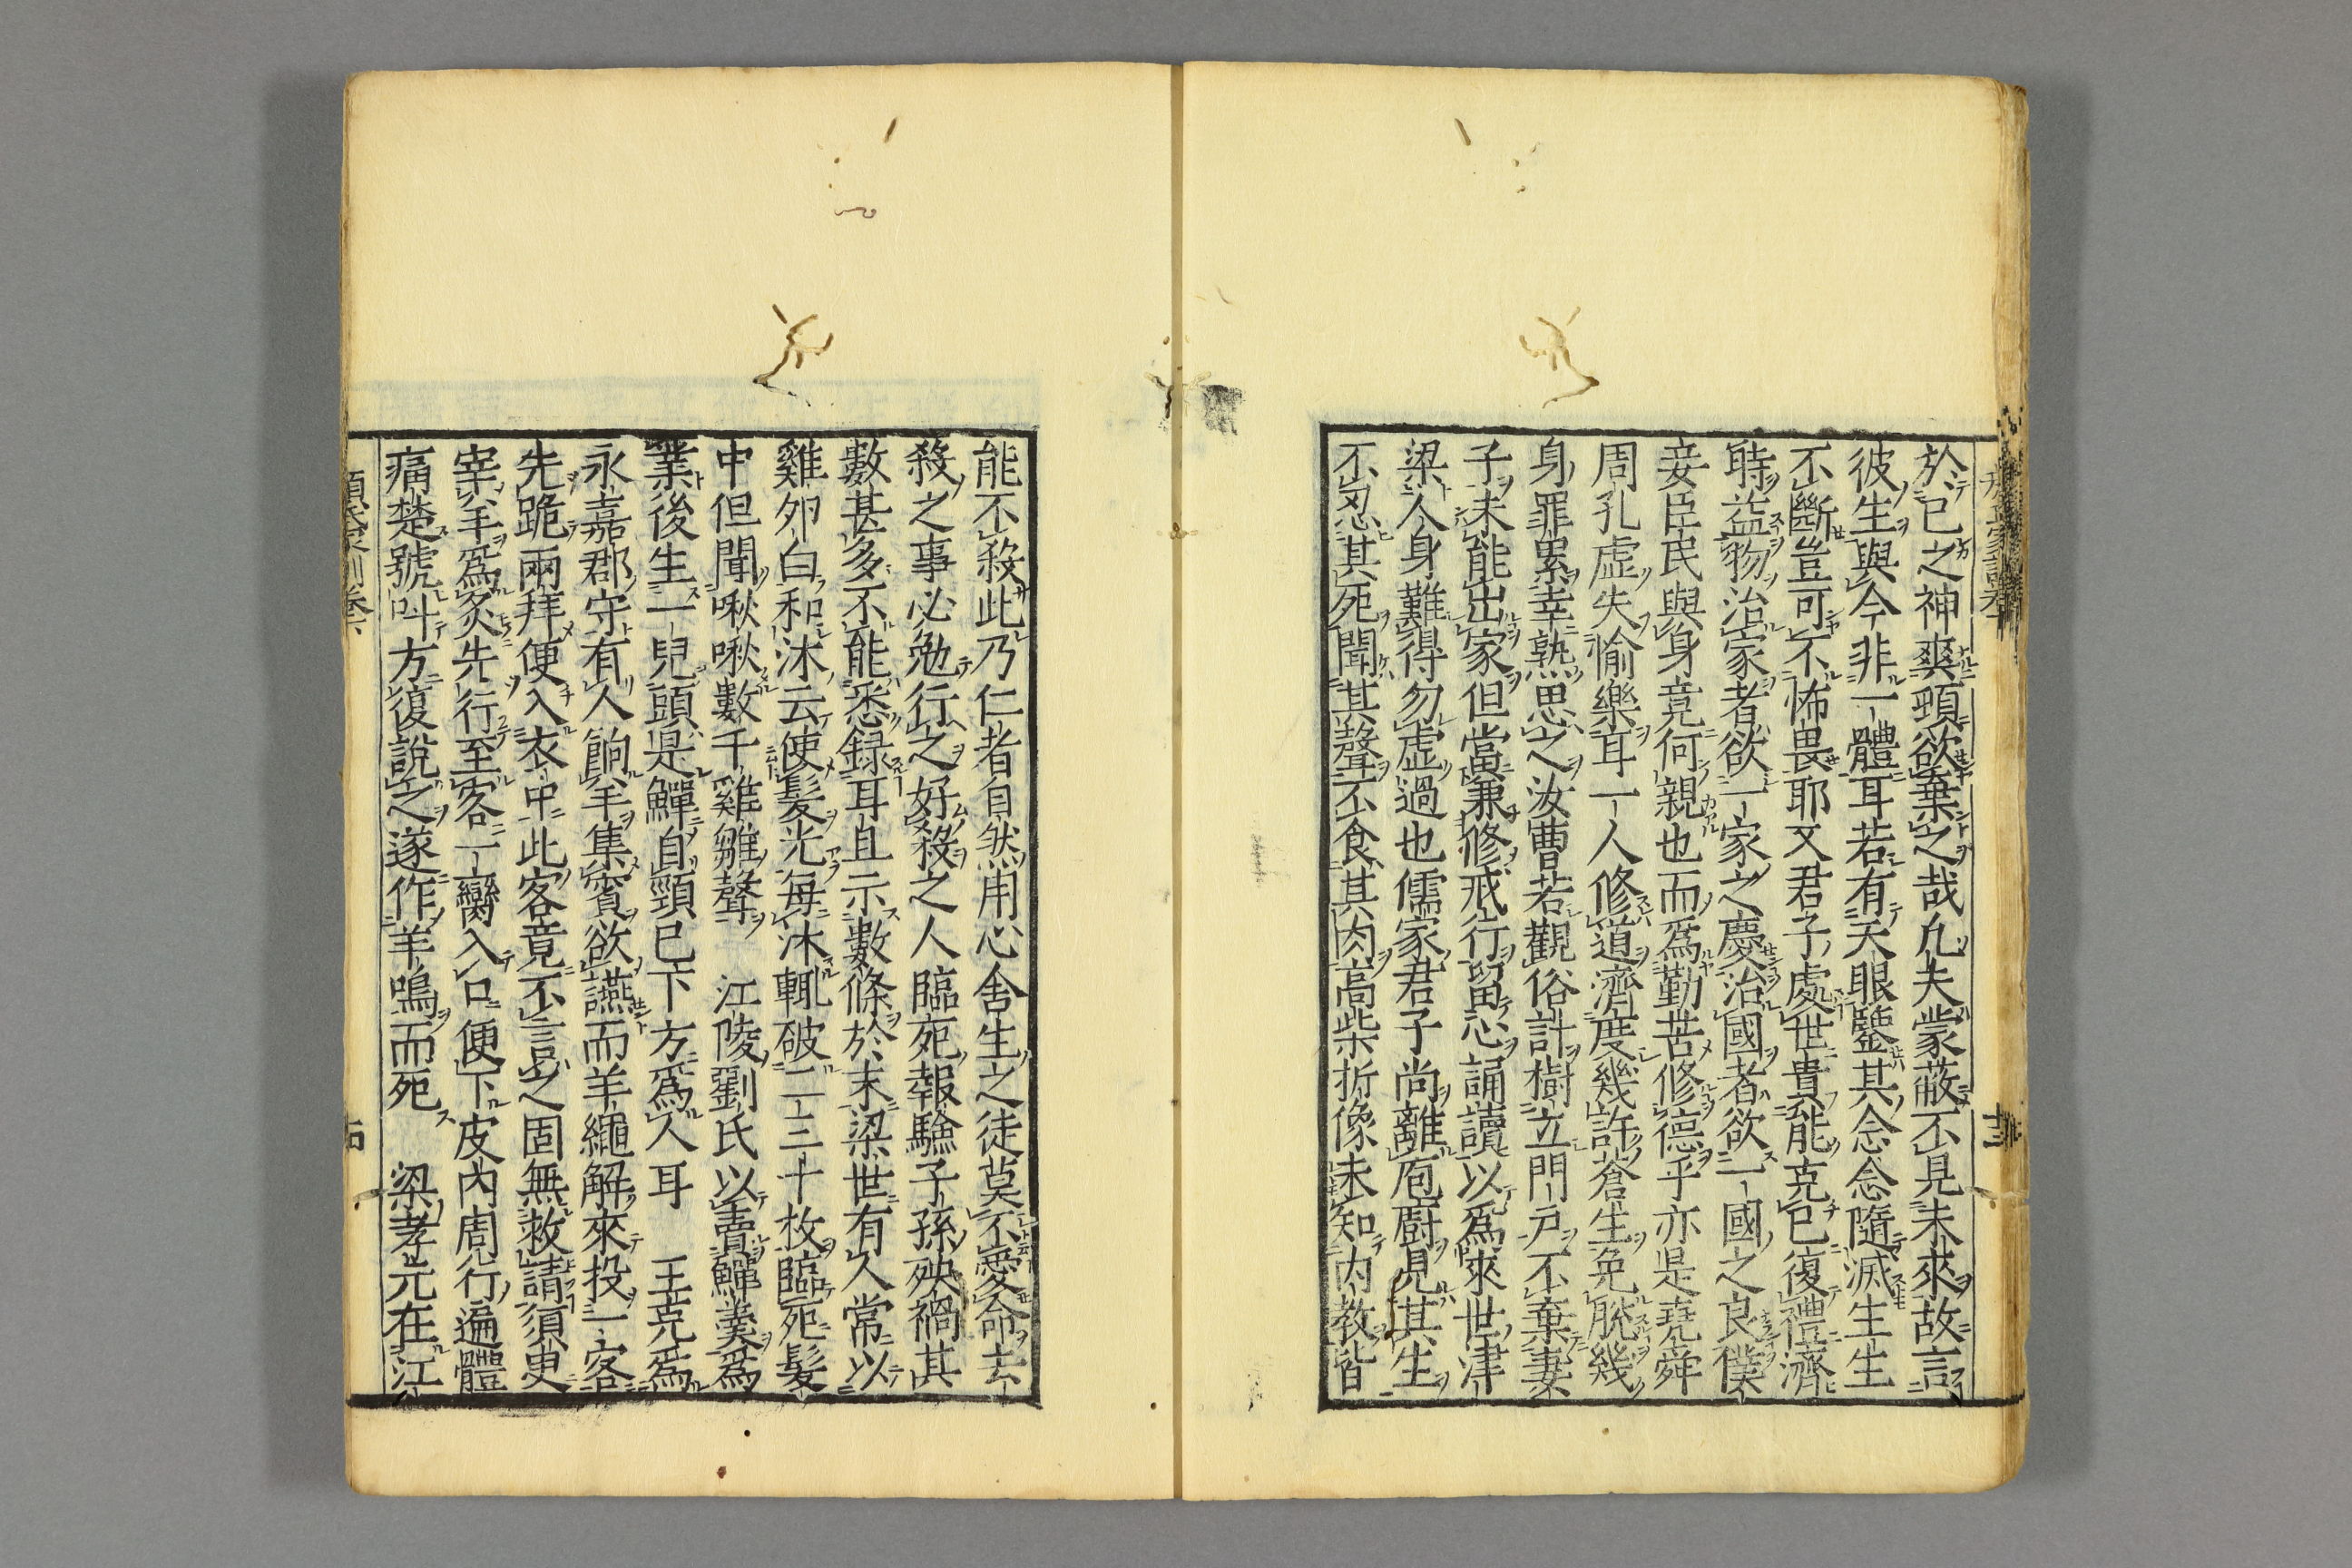 於己之神爽頓欲棄之哉凡夫蒙蔽不見未來故言
彼生與今非一體耳若有天眼鑒其念念隨滅生生
不斷豈可不怖畏耶又君子處世貴能克己復禮濟
時益物治家者欲一家之慶治國者欲一國之良僕
妾臣民與身竟何親也而爲勤苦修德乎亦是堯舜
周孔虛失愉樂耳一人修道濟度幾許蒼生免脫幾
身罪累幸熟思之汝曹若觀俗計樹立門戶不棄妻
子未能出家但當兼修戒行留心誦讀以爲來世津
梁人身難得勿虛過也儒家君子尚離庖廚見其生
不忍其死聞其聲不食其肉高柴折像未知內教皆
能不殺此乃仁者自然用心含生之徒莫不愛命去
殺之事必勉行之好殺之人臨死報驗子孫殃禍其
數甚多不能悉錄耳且示數條於末梁世有人常以
雞卵白和沐云使髮光每沐輒破二三十枚臨死髮
中但聞啾啾數千雞雛聲 江陵劉氏以賣鱓羹爲
業後生一兒頭是鱓自頸已下方爲人耳 王克爲
永嘉郡守有人餉羊集賓欲讌而羊繩解來投一客
先跪兩拜便入衣中此客竟不言之固無救請須臾
宰羊爲炙先行至客一臠入口便下皮內周行遍體
痛楚號叫方復說之遂作羊鳴而死 梁孝元在江
顏氏家訓卷下 十四